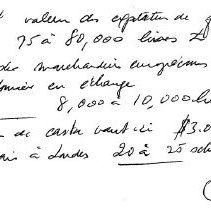 valeur des exportation de g
75 à 80,000 livres £
des marchandises européennes
données en échange
8,000 à 10,000 li
de castor vaut ici $3.0
mais à Londres 20 à 25 sch
(